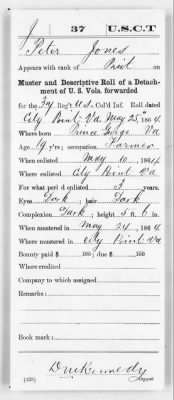 J 37 U.S.C.T.
Peter Jones
Appears with rank of Privt on
Muster and Descriptive Roll of a Detach-
ment of U. S. Vols. forwarded
for the 37 Reg't U.S. Col'd Inf. Roll dated
City Point Va May 25, 1864
Where born Prince George Va
Age 19 y'rs; occupation Farmer
When enlisted May 10, 1864
Where enlisted City Point Va
For what period enlisted 3 years.
Eyes Dark; hair Dark
Complexion Dark; height 5 ft. 6 in.
When mustered in May 24, 1864
Where mustered in City Point Va
Bounty paid $ 100; due $ 100
Where credited
Company to which assigned
Remarks:
Book mark:
Kennedy
Copyist